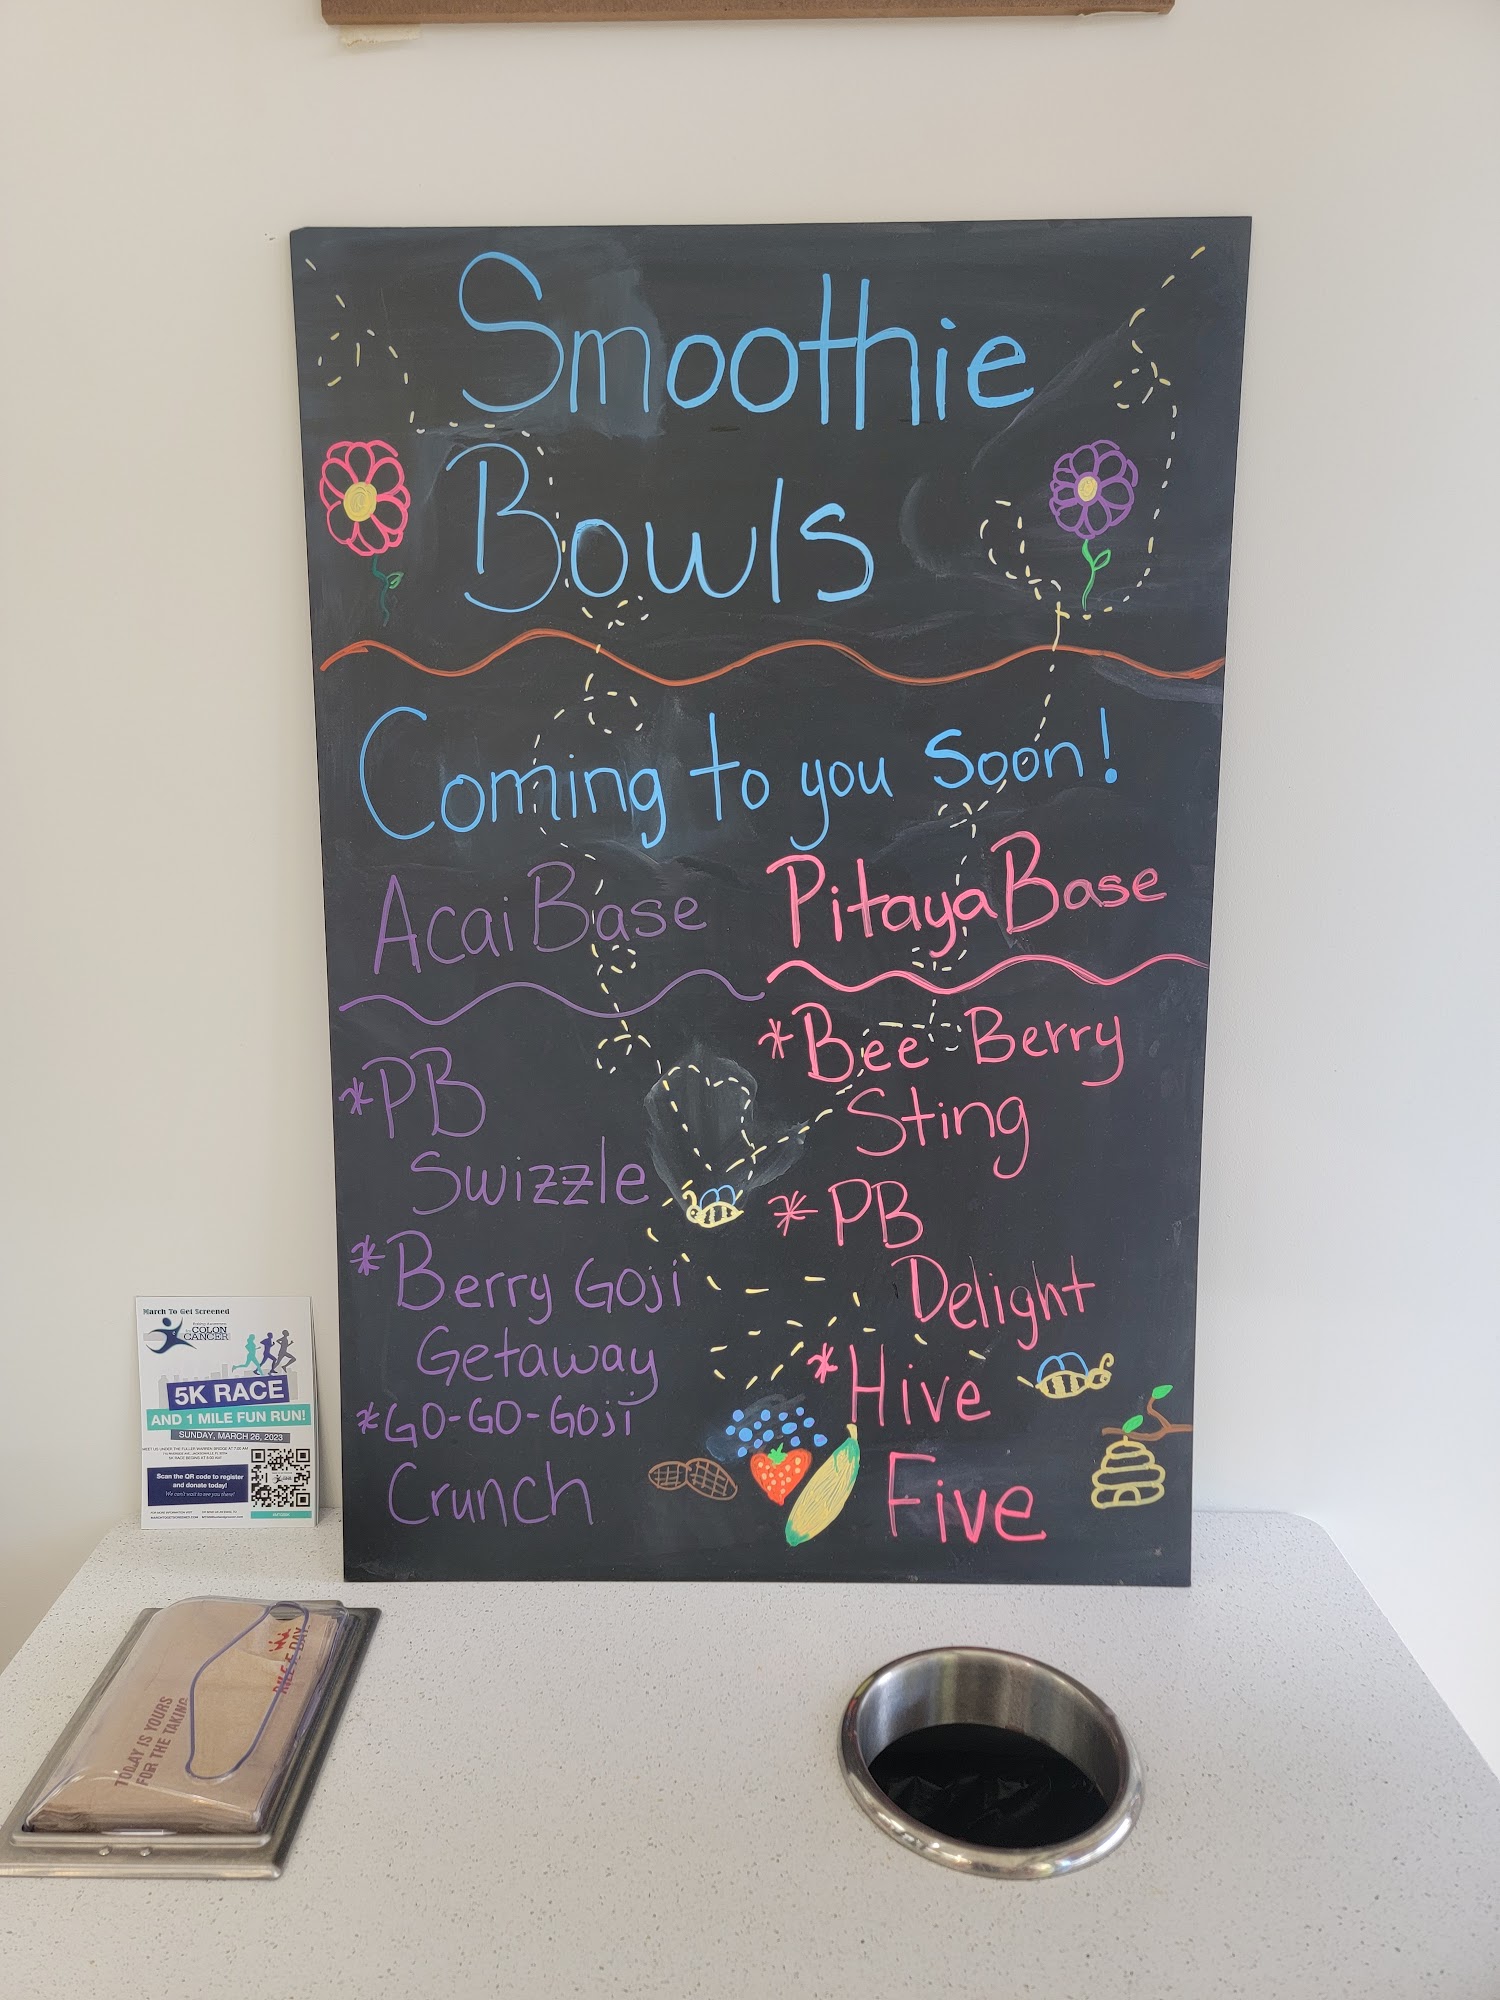 Smoothie
Bowls
Coming to you soon!
Acai Base
*PB
Swizzle
*Berry Goji
Getaway
*GO-GO-Goji
Crunch
Pitaya Base
*Bee Berry
Sting
*PB
Delight
*Hive
Five
March To Get Screened
COLON
CANCER
5K RACE
AND 1 MILE FUN RUN!
SUNDAY, MARCH 26, 2023
MEET US UNDER THE FULLER WARREN BRIDGE AT 7:00 AM
5K RACE BEGINS AT 8:00 AM
Scan the QR code to register
and donate today!
We can't wait to see you there!
TODAY IS YOURS
FOR THE TAKING